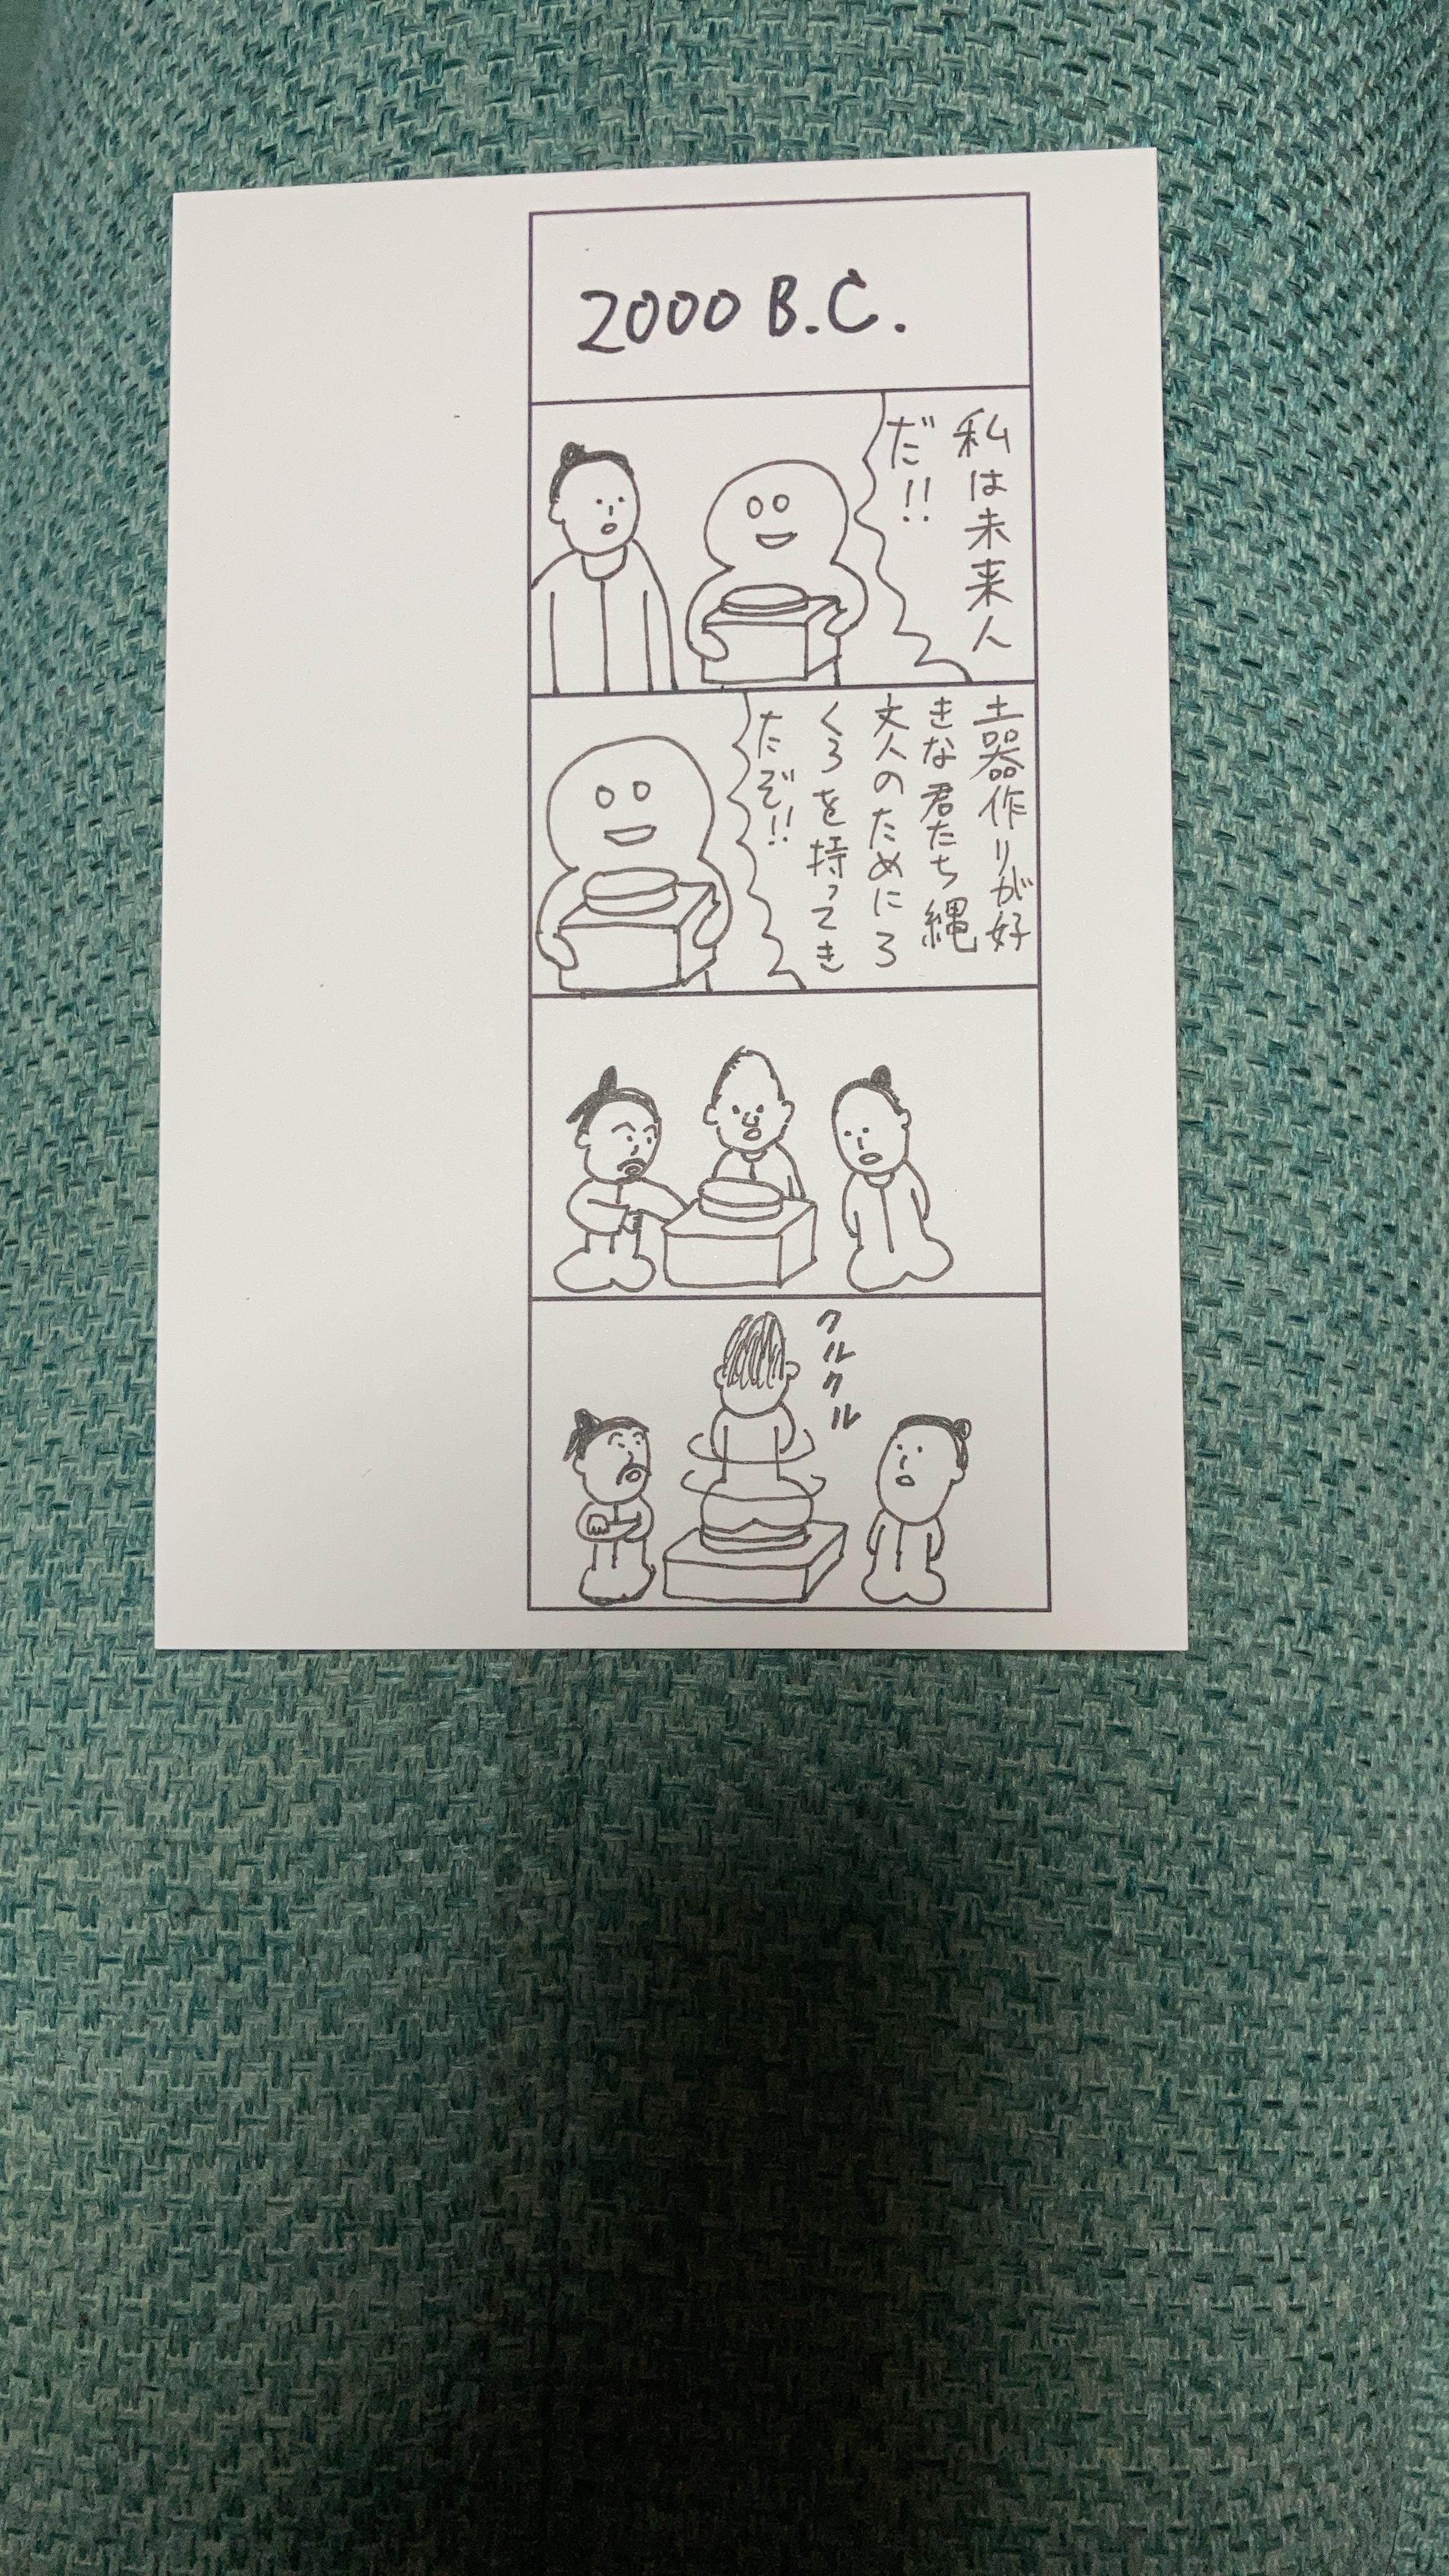 2000 B.C.
私は未来人
だ!!
土器作りが好
きな君たち縄
文人のためにろ
くろを持ってき
たぞ!!
クルクル